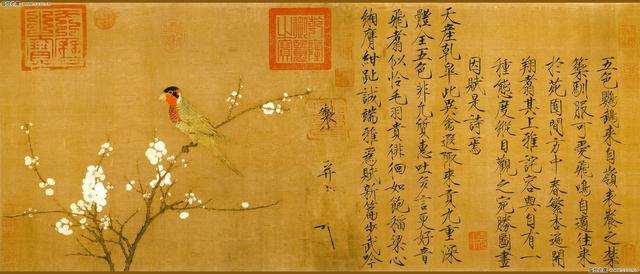 五色鸚鵡來自嶺表養之禁
籞馴服可愛飛鳴自適往來
於苑囿間方中春繁杏遍開
翔翥其上雅詫容與自有一
種態度縱目觀之宛勝圖畫
因賦是詩焉
天產乾皋此異禽遐陬來貢九重深
體全五色非凡質惠吐多言更好音
飛翥似憐毛羽貴徘徊如飽稻粱心
緗膺紺趾誠端雅為賦新篇步武吟
製
并
天曆之寶